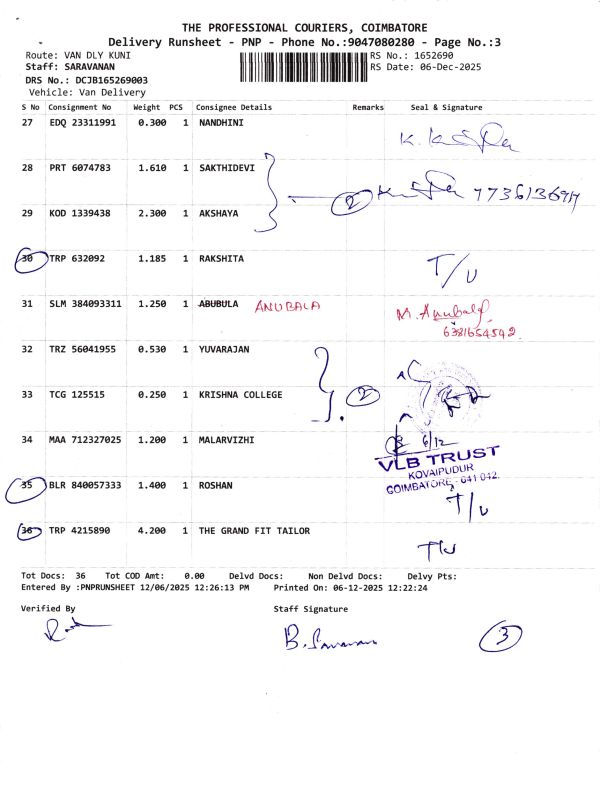 THE PROFESSIONAL COURIERS, COIMBATORE
Delivery Runsheet - PNP - Phone No.:9047080280 - Page No.:3
Route: VAN DLY KUNI RS No.: 1652690
Staff: SARAVANAN RS Date: 06-Dec-2025
DRS No.: DCJB165269003
Vehicle: Van Delivery
S No Consignment No Weight PCS Consignee Details Remarks Seal & Signature
27 EDQ 23311991 0.300 1 NANDHINI
28 PRT 6074783 1.610 1 SAKTHIDEVI
2 7736136917
29 KOD 1339438 2.300 1 AKSHAYA
30 TRP 632092 1.185 1 RAKSHITA T/U
31 SLM 384093311 1.250 1 ABUBULA ANUBALA M. Anubala
6381654542
32 TRZ 56041955 0.530 1 YUVARAJAN
33 TCG 125515 0.250 1 KRISHNA COLLEGE 2
34 MAA 712327025 1.200 1 MALARVIZHI 6/12
VLB TRUST
KOVAIPUDUR
COIMBATORE - 641 042.
35 BLR 840057333 1.400 1 ROSHAN T/U
36 TRP 4215890 4.200 1 THE GRAND FIT TAILOR T/U
Tot Docs: 36 Tot COD Amt: 0.00 Delvd Docs: Non Delvd Docs: Delvy Pts:
Entered By :PNPRUNSHEET 12/06/2025 12:26:13 PM Printed On: 06-12-2025 12:22:24
Verified By Staff Signature
B. Saravanan 3